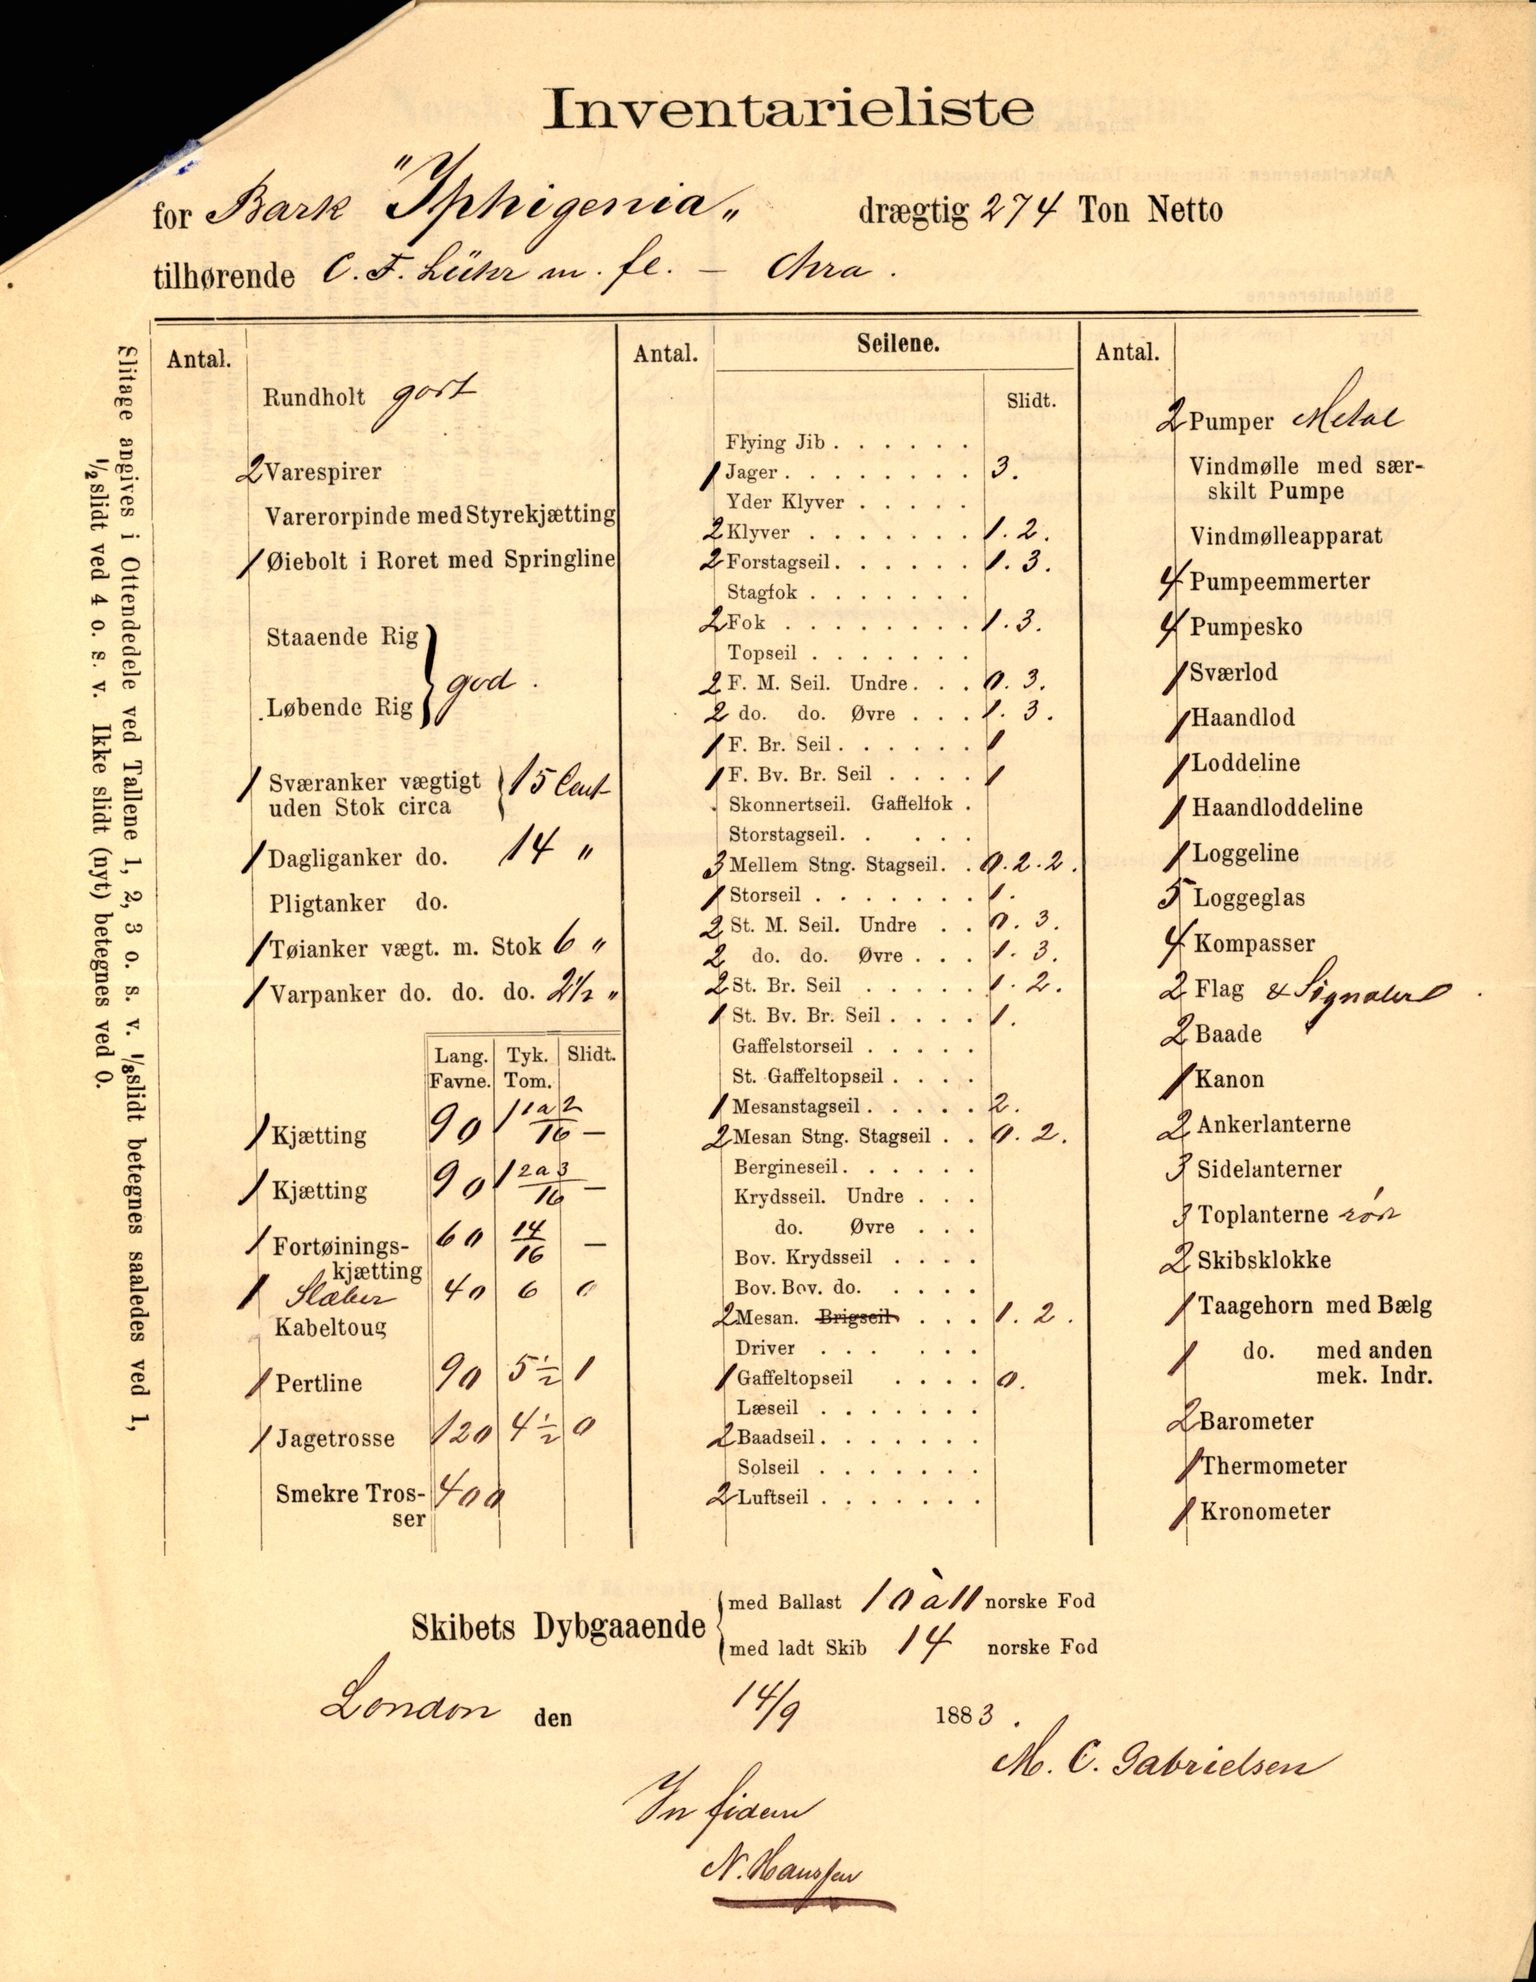 Inventarieliste
for Bark "Iphigenia" drægtig 274 Ton Netto
tilhørende C. F. Lühr m. fl. – Chra.
Slitage angives i Ottendedele ved Tallene 1, 2, 3 o. s. v. 1/8 slidt betegnes saaledes ved 1,
1/2 slidt ved 4 o. s. v. Ikke slidt (nyt) betegnes ved 0.
Antal.
Rundholt godt
2 Varespirer
Varerorpinde med Styrekjætting
1 Øiebolt i Roret med Springline
Staaende Rig
god.
Løbende Rig
1 Sværanker vægtigt
uden Stok circa 15 Cent
1 Dagliganker do. 14 "
Pligtanker do.
1 Tøianker vægt. m. Stok 6 "
1 Varpanker do. do. do. 2 1/2 "
Lang. Tyk. Slidt.
Favne. Tom.
1 Kjætting 90 1 1a2/16 –
1 Kjætting 90 1 2a3/16 –
1 Fortøinings-
kjætting 60 14/16 –
1 Slæber 40 6 0
Kabeltoug
1 Pertline 90 5 1/2 1
1 Jagetrosse 120 4 1/2 0
Smekre Tros-
ser 400
Antal. Seilene.
Slidt.
Flying Jib . . . . . .
1 Jager . . . . . . . . 3.
Yder Klyver . . . . .
2 Klyver . . . . . . . 1. 2.
2 Forstagseil . . . . . . 1. 3.
Stagfok . . . . . . .
2 Fok . . . . . . . . 1. 3.
Topseil . . . . . . .
2 F. M. Seil. Undre . . . 0. 3.
2 do. do. Øvre . . . 1. 3.
1 F. Br. Seil . . . . . . 1
1 F. Bv. Br. Seil . . . . 1
Skonnertseil. Gaffelfok .
Storstagseil. . . . .
3 Mellem Stng. Stagseil. . 0. 2. 2.
1 Storseil . . . . . . . 1.
2 St. M. Seil. Undre . . 0. 3.
2 do. do. Øvre . . . 1. 3.
2 St. Br. Seil . . . . . 1. 2.
1 St. Bv. Br. Seil . . . . 1.
Gaffelstorseil . . . . .
St. Gaffeltopseil . . . .
1 Mesanstagseil . . . . . 2.
2 Mesan Stng. Stagseil . . 0. 2.
Bergineseil . . . . . .
Krydsseil. Undre . . .
do. Øvre . . .
Bov. Krydsseil . . . .
Bov. Bov. do. . . . .
2 Mesan. Brigseil . . . 1. 2.
Driver . . . . . .
1 Gaffeltopseil . . . . 0.
Læseil . . . . . . .
2 Baadseil . . . . . . .
Solseil . . . . . . .
2 Luftseil . . . . . . .
Antal.
2 Pumper Metal
Vindmølle med sær-
skilt Pumpe
Vindmølleapparat
4 Pumpeemmerter
4 Pumpesko
1 Sværlod
1 Haandlod
1 Loddeline
1 Haandloddeline
1 Loggeline
5 Loggeglas
4 Kompasser
2 Flag & Signaler
2 Baade
1 Kanon
2 Ankerlanterne
3 Sidelanterner
3 Toplanterne rød
2 Skibsklokke
1 Taagehorn med Bælg
1 do. med anden
mek. Indr.
2 Barometer
1 Thermometer
1 Kronometer
Skibets Dybgaaende
med Ballast 10 à 11 norske Fod
med ladt Skib 14 norske Fod
London den 14/9 1883.
M. C. Gabrielsen
In fidem
N. Hanssen